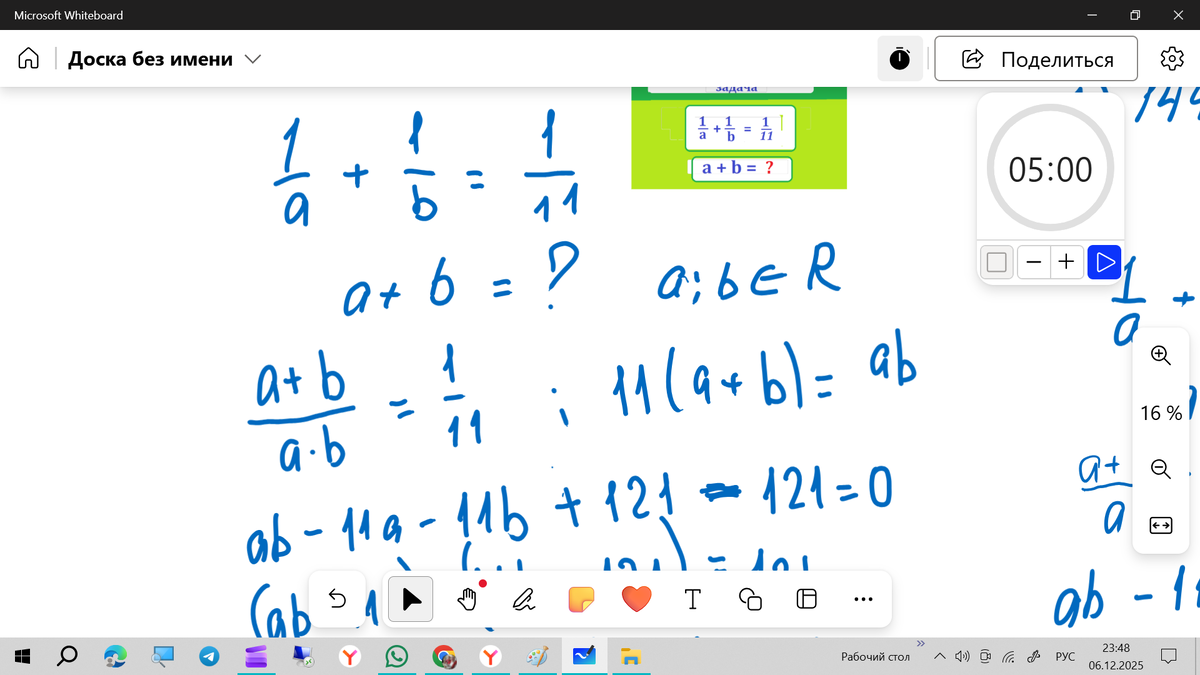 Microsoft Whiteboard
Доска без имени
Поделиться
задача
1/a + 1/b = 1/11
a + b = ?
1/a + 1/b = 1/11
a + b = ?
a; b ∈ R
(a+b)/(a·b) = 1/11 ; 11(a+b) = ab
ab - 11a - 11b + 121 - 121 = 0
(ab
144
05:00
1/a +
16 %
a+
a
ab - 11
T
Рабочий стол
РУС
23:48
06.12.2025